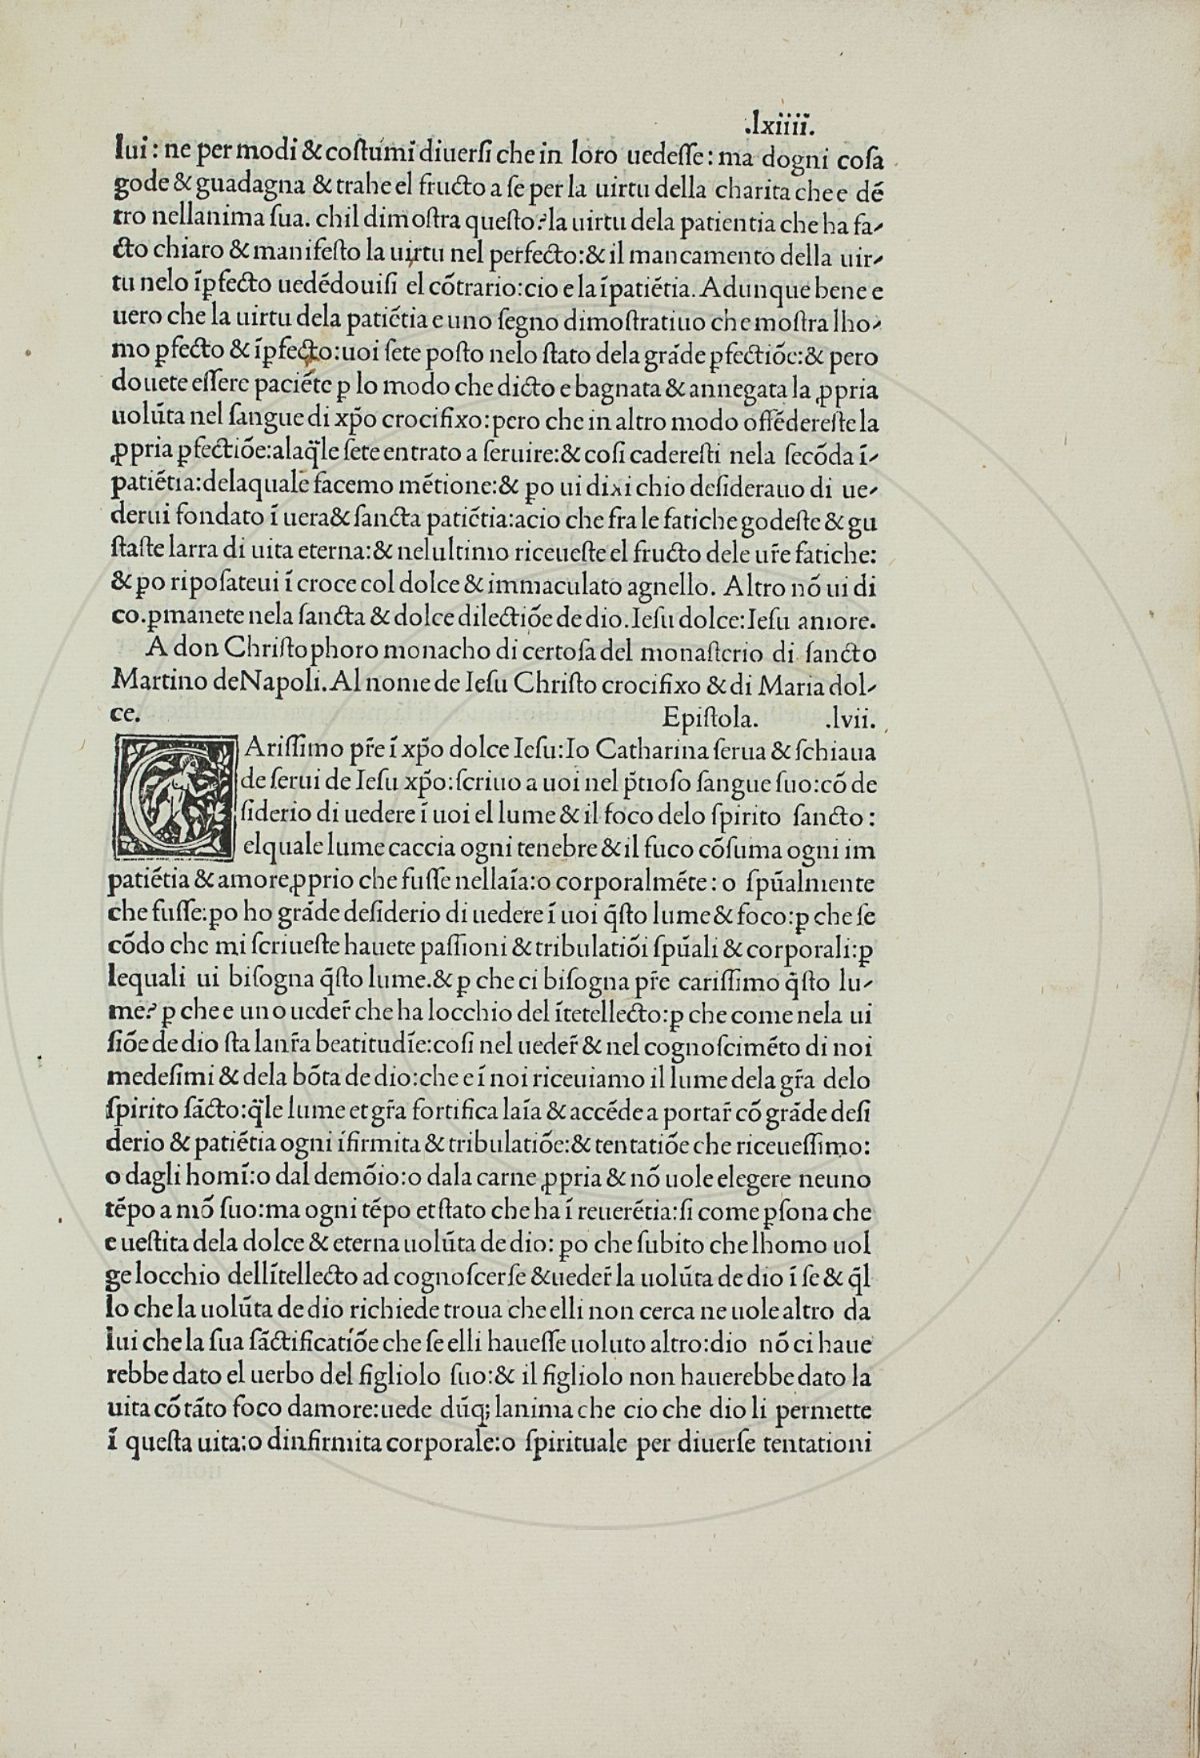 .lxiiii.
lui: ne per modi & coſtumi diuerſi che in loro uedeſſe: ma dogni coſa
gode & guadagna & trahe el fructo a ſe per la uirtu della charita che e dē
tro nellanima ſua. chil dimoſtra queſto? la uirtu dela patientia che ha fa-
cto chiaro & manifeſto la uirtu nel perfecto: & il mancamento della uir-
tu nelo īꝑfecto uedēdouiſi el cōtrario: cio e la īpatiētia. Adunque bene e
uero che la uirtu dela patiētia e uno ſegno dimoſtratiuo che moſtra lho-
mo ꝑfecto & īꝑfecto: uoi ſete poſto nelo ſtato dela grāde ꝑfectiōe: & pero
douete eſſere paciēte ꝑ lo modo che dicto e bagnata & annegata la ꝓpria
uolūta nel ſangue di xp̄o crocifixo: pero che in altro modo offēdereſte la
ꝓpria ꝑfectiōe: ala q̄le ſete entrato a ſeruire: & coſi cadereſti nela ſecōda ī-
patiētia: dela quale facemo mētione: & ꝑo ui dixi chio deſiderauo di ue-
derui fondato ī uera & ſancta patiētia: acio che fra le fatiche godeſte & gu
ſtaſte larra di uita eterna: & nel ultimo riceueſte el fructo dele ur̄e fatiche:
& ꝑo ripoſateui ī croce col dolce & immaculato agnello. Altro nō ui di
co. ꝑmanete nela ſancta & dolce dilectiōe de dio. Ieſu dolce: Ieſu amore.
A don Chriſtophoro monacho di certoſa del monaſterio di ſancto
Martino de Napoli. Al nome de Ieſu Chriſto crocifixo & di Maria dol-
ce. Epiſtola. .lvii.
CAriſſimo pr̄e ī xp̄o dolce Ieſu: Io Catharina ſerua & ſchiaua
de ſerui de Ieſu xp̄o: ſcriuo a uoi nel p̄tioſo ſangue ſuo: cō de
ſiderio di uedere ī uoi el lume & il foco delo ſpirito ſancto:
el quale lume caccia ogni tenebre & il fuco cōſuma ogni im
patiētia & amore ꝓprio che fuſſe nella īa: o corporalmēte: o ſpūalmente
che fuſſe: ꝑo ho grāde deſiderio di uedere ī uoi q̄ſto lume & foco: ꝑ che ſe
cōdo che mi ſcriueſte hauete paſſioni & tribulatiōi ſpūali & corporali: ꝑ
lequali ui biſogna q̄ſto lume. & ꝑ che ci biſogna pr̄e cariſſimo q̄ſto lu-
me? ꝑ che e uno ueder̄ che ha locchio del ītetellecto: ꝑ che come nela ui
ſiōe de dio ſta la nr̄a beatitudīe: coſi nel ueder̄ & nel cognoſcimēto di noi
medeſimi & dela bōta de dio: che e ī noi riceuiamo il lume dela gr̄a delo
ſpirito ſācto: q̄le lume et gr̄a fortifica la īa & accēde a portar̄ cō grāde deſi
derio & patiētia ogni īfirmita & tribulatiōe: & tentatiōe che riceueſſimo:
o dagli homī: o dal demōio: o dala carne ꝓpria & nō uole elegere neuno
tēpo a mō ſuo: ma ogni tēpo et ſtato che ha ī reuerētia: ſi come ꝑſona che
e ueſtita dela dolce & eterna uolūta de dio: ꝑo che ſubito che lhomo uol
ge locchio dellītellecto ad cognoſcerſe & ueder̄ la uolūta de dio ī ſe & q̄l
lo che la uolūta de dio richiede troua che elli non cerca ne uole altro da
lui che la ſua ſāctificatiōe che ſe elli haueſſe uoluto altro: dio nō ci haue
rebbe dato el uerbo del figliolo ſuo: & il figliolo non hauerebbe dato la
uita cō tāto foco damore: uede dūq; lanima che cio che dio li permette
ī queſta uita: o dinfirmita corporale: o ſpirituale per diuerſe tentationi